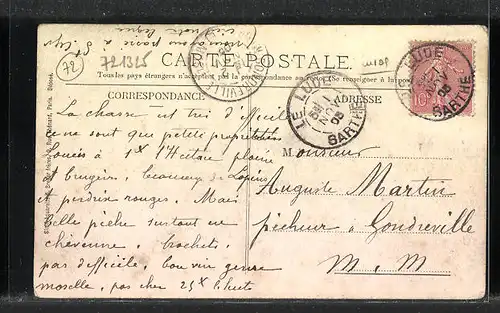 72
721325
CARTE POSTALE
Tous les pays étrangers n'acceptent pas la correspondance au recto (Se renseigner à la
CORRESPONDANCE
ADRESSE
LE LUDE
NOV
05
SARTHE
LE LUDE
05
SARTHE
10
La chasse est très difficile
ce ne sont que petits propriétés
louées à 1x l'Hectare plaine
et bruyères, beaucoup de lapins
et perdrix rouges. Mais
belle pêche surtout au
chevenne, brochets,
pas difficile, bon vin genre
moselle, pas cher 25x l'hecto
Monsieur
Auguste Martin
pêcheur à Gondreville
M. M